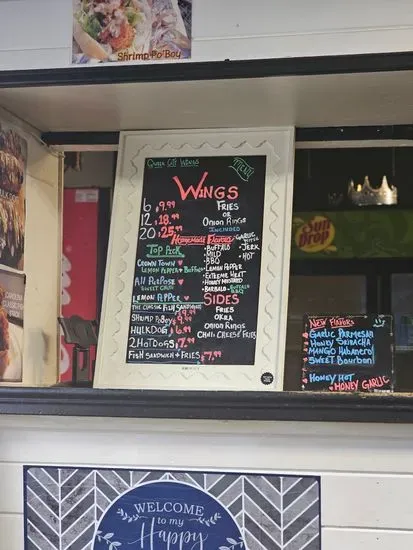 Shrimp Po'Boy
Queen City Wings
MENU
WINGS
6 $9.99
12 $18.99
20 $25.99
FRIES
OR
ONION RINGS
INCLUDED
Homemade Flavors
TOP PICK
CROWN TOWN
LEMON PEPPER + BUFFALO
ALL PURPOSE
SWEET
LEMON PEPPER
• BUFFALO
• MILD
• BBQ
• LEMON PEPPER
• EXTREME HEAT
• HONEY MUSTARD
• BARBALO - BUFFALO BBQ
• GARLIC
• JERK
• HOT
THE CLASSIC FISH SANDWICH
SHRIMP PO'BOY $9.99
HULK DOG $6.99
2 HOTDOGS $7.99
FISH SANDWICH + FRIES $
SIDES
FRIES
OKRA
ONION RINGS
CHILI CHEESE FRIES
SunDrop
NEW FLAVORS
GARLIC PARMESAN
HONEY SRIRACHA
MANGO HABANERO
SWEET BOURBON
HONEY HOT
HONEY GARLIC
WELCOME
to my
Happy